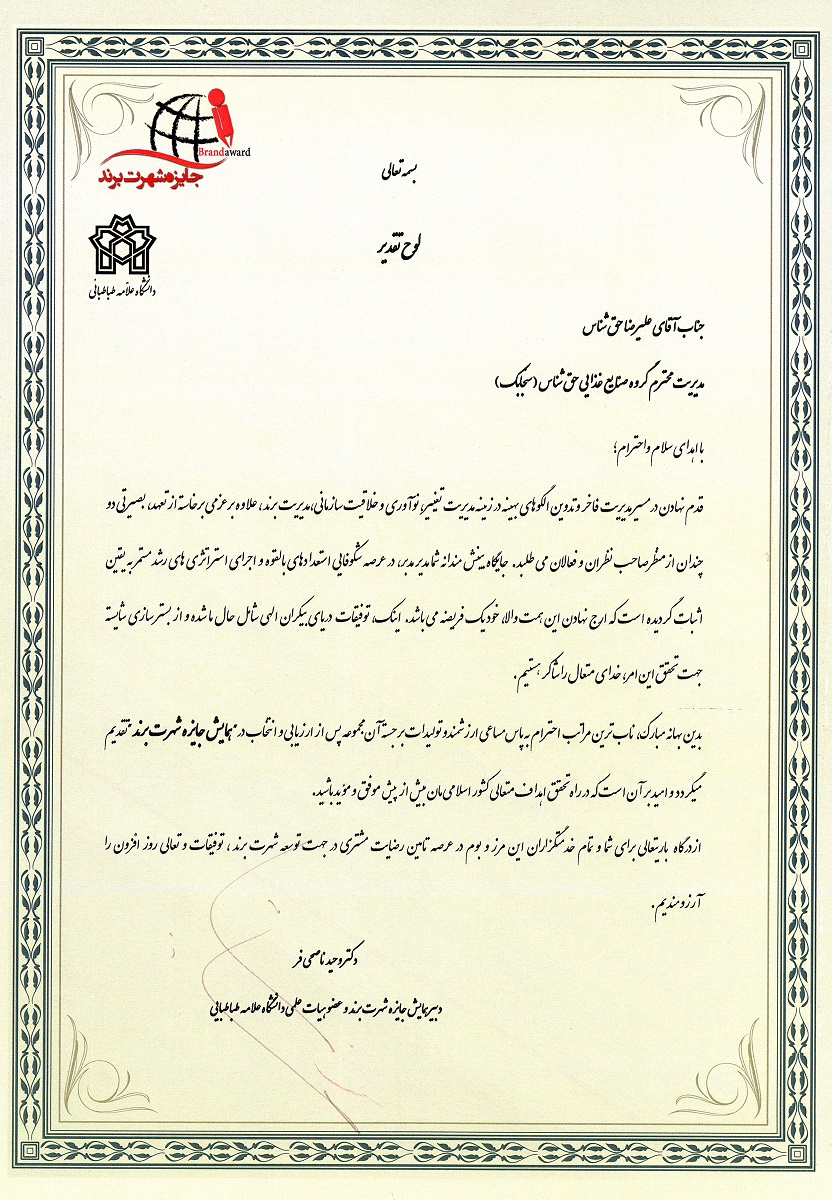 Brandaward
جایزه شهرت برند
دانشگاه علامه طباطبائی
بسمه تعالی
لوح تقدیر
جناب آقای علیرضا حق شناس
مدیریت محترم گروه صنایع غذایی حق شناس (سحابک)
با اهدای سلام و احترام؛
قدم نهادن در مسیر مدیریت فاخر و تدوین الگوهای بهینه در زمینه مدیریت تغییر، نوآوری و خلاقیت سازمانی، مدیریت برند، علاوه بر عزمی برخاسته از تعهد، بصیرتی دو
چندان از منظر صاحب نظران و فعالان می طلبد. جایگاه بینش مندانه شما مدیر مدبر، در عرصه شکوفایی استعدادهای بالقوه و اجرای استراتژی های رشد مستمر به یقین
اثبات گردیده است که ارج نهادن این همت والا، خود یک فریضه می باشد. اینک، توفیقات دریای بیکران الهی شامل حال ما شده و از بسترسازی شایسته
جهت تحقق این امر، خدای متعال را شاکر هستیم.
بدین بهانه مبارک، ناب ترین مراتب احترام به پاس مساعی ارزشمند و تولیدات برجسته آن مجموعه پس از ارزیابی و انتخاب در "همایش جایزه شهرت برند" تقدیم
میگردد و امید بر آن است که در راه تحقق اهداف متعالی کشور اسلامی مان بیش از پیش موفق و مؤید باشید.
از درگاه باریتعالی برای شما و تمام خدمتگزاران این مرز و بوم در عرصه تامین رضایت مشتری در جهت توسعه شهرت برند، توفیقات و تعالی روز افزون را
آرزومندیم.
دکتر وحید ناصحی فر
دبیر همایش جایزه شهرت برند و عضو هیات علمی دانشگاه علامه طباطبایی